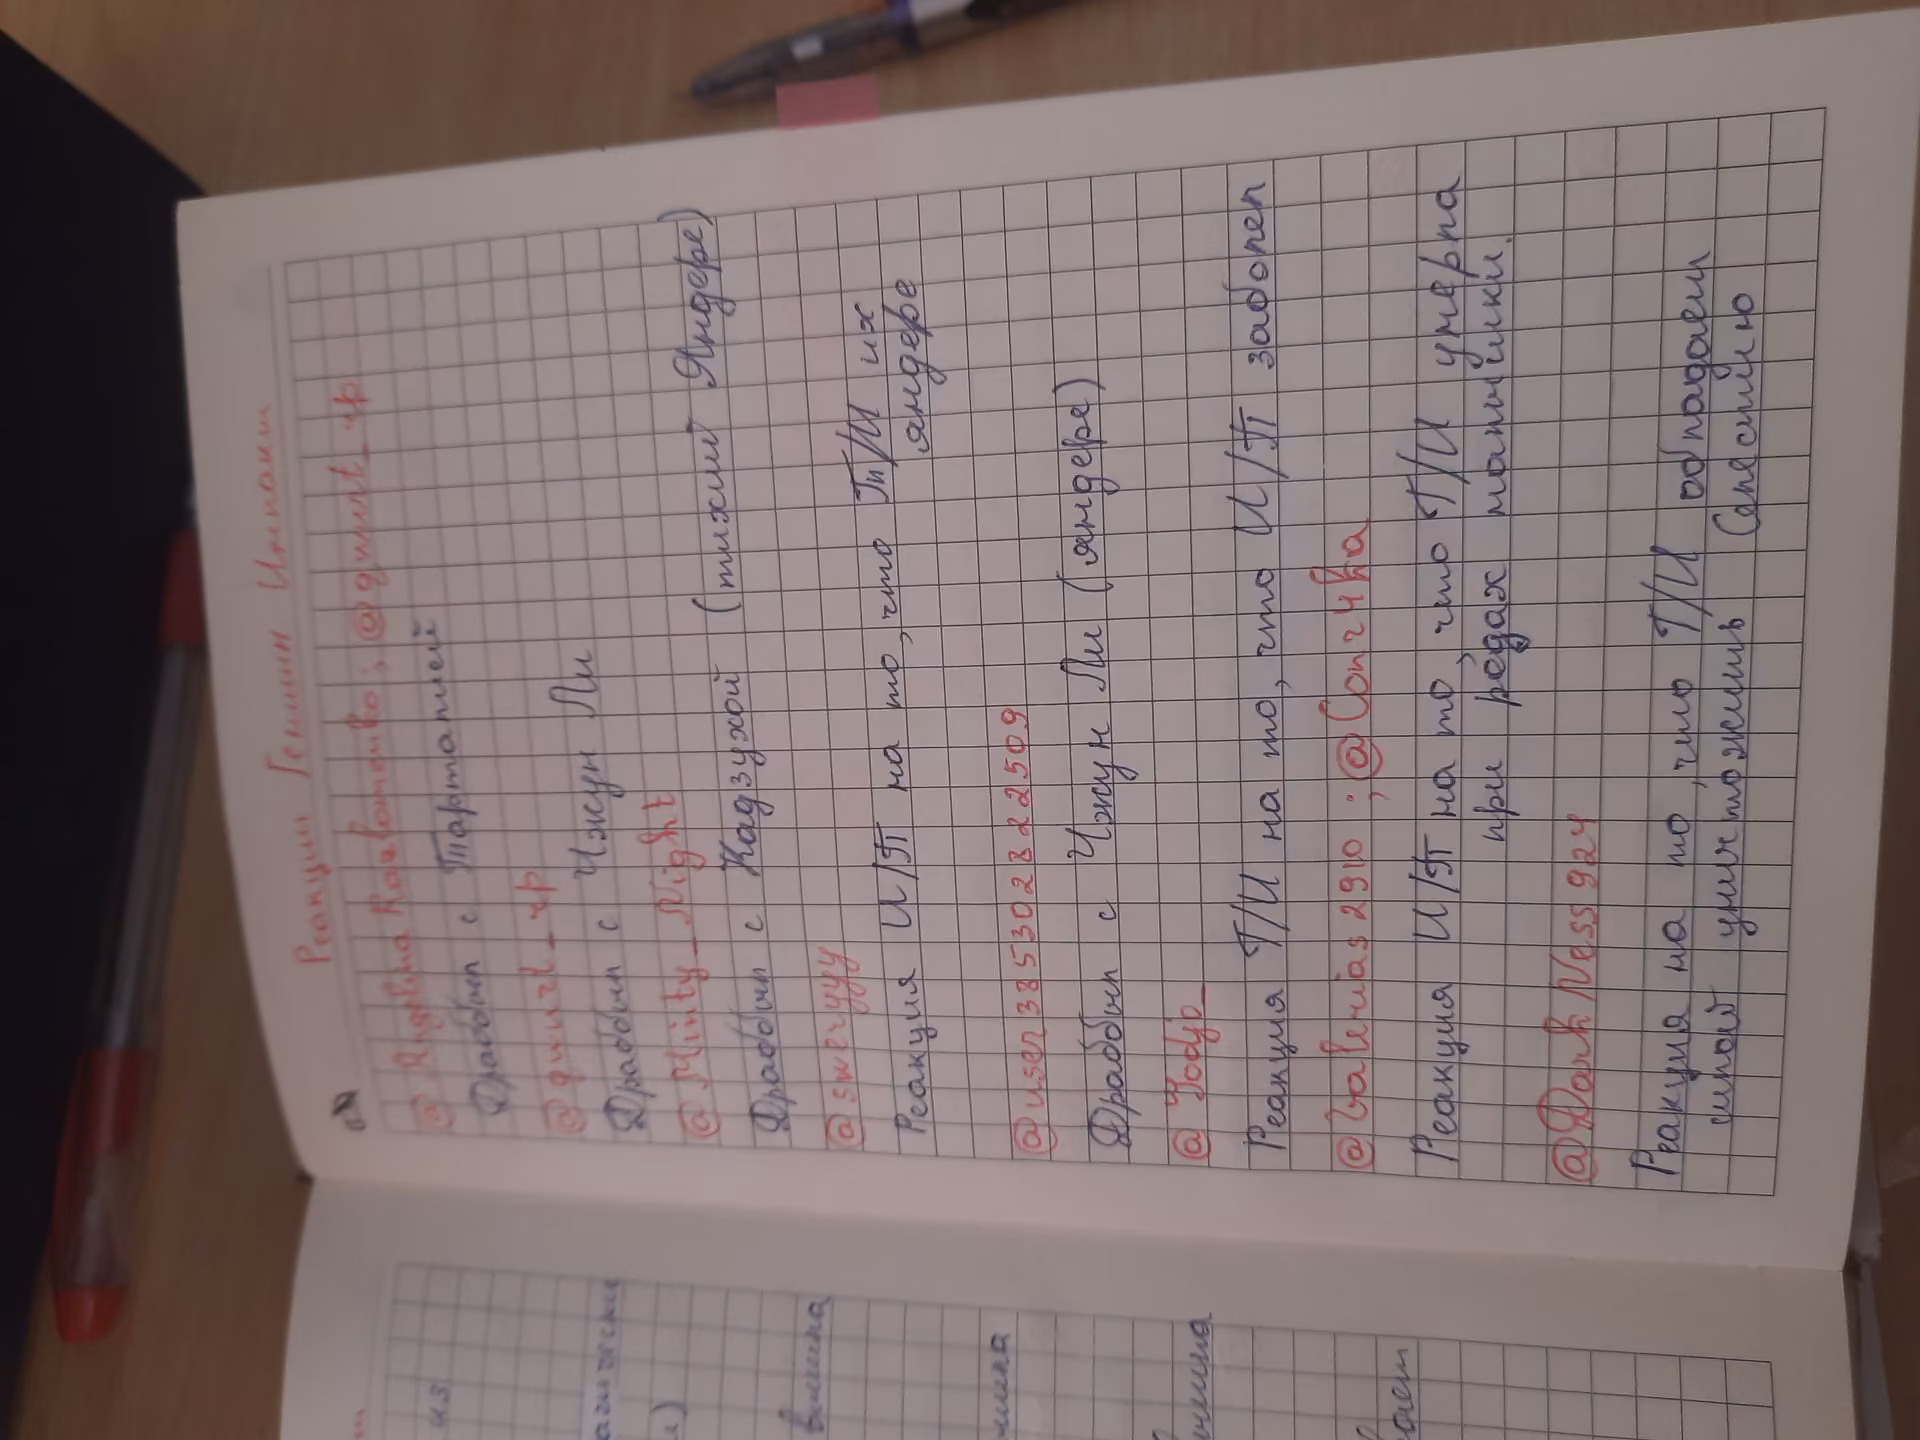 Реакции Геншин Импакт
@Angelina Kozlomotко ; @qwurt_чр
Драббыл с Тартальей
@qwurt_чр
Драббыл с Чжун Ли
@Minty_Night
Драббыл с Кадзухой (тихий Яндере)
@sweryyyy
Реакция И/П на то, что Т/И их
яндере
@user3853028 22509
Драббыл с Чжун Ли (яндере)
@Yodjo_
Реакция Т/И на то, что И/П заболел
@valerias2910 ; @Conv4ka
Реакция И/П на то, что Т/И умерла
при родах малышки.
@DarkNess924
Реакция на то, что Т/И обладает
силой уничтожить Селестию
из
вишна